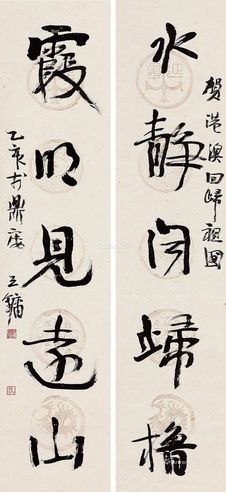 賀港澳回歸祖國
水靜聞歸櫓
霞明見遠山
乙亥於鼎廬 王鏞